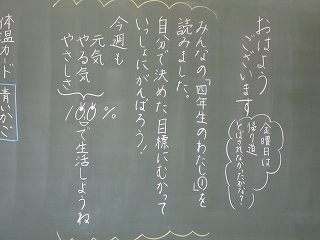 おはよう
ございます
金曜日は
帰り道
とばされなかったかな？
みんなの「四年生のわたし」①を
読みました。
自分で決めた目標にむかって
いっしょにがんばろう！
今週も
元気
やる気
やさしさ
100％
で生活しようね
体温カード
青いかご